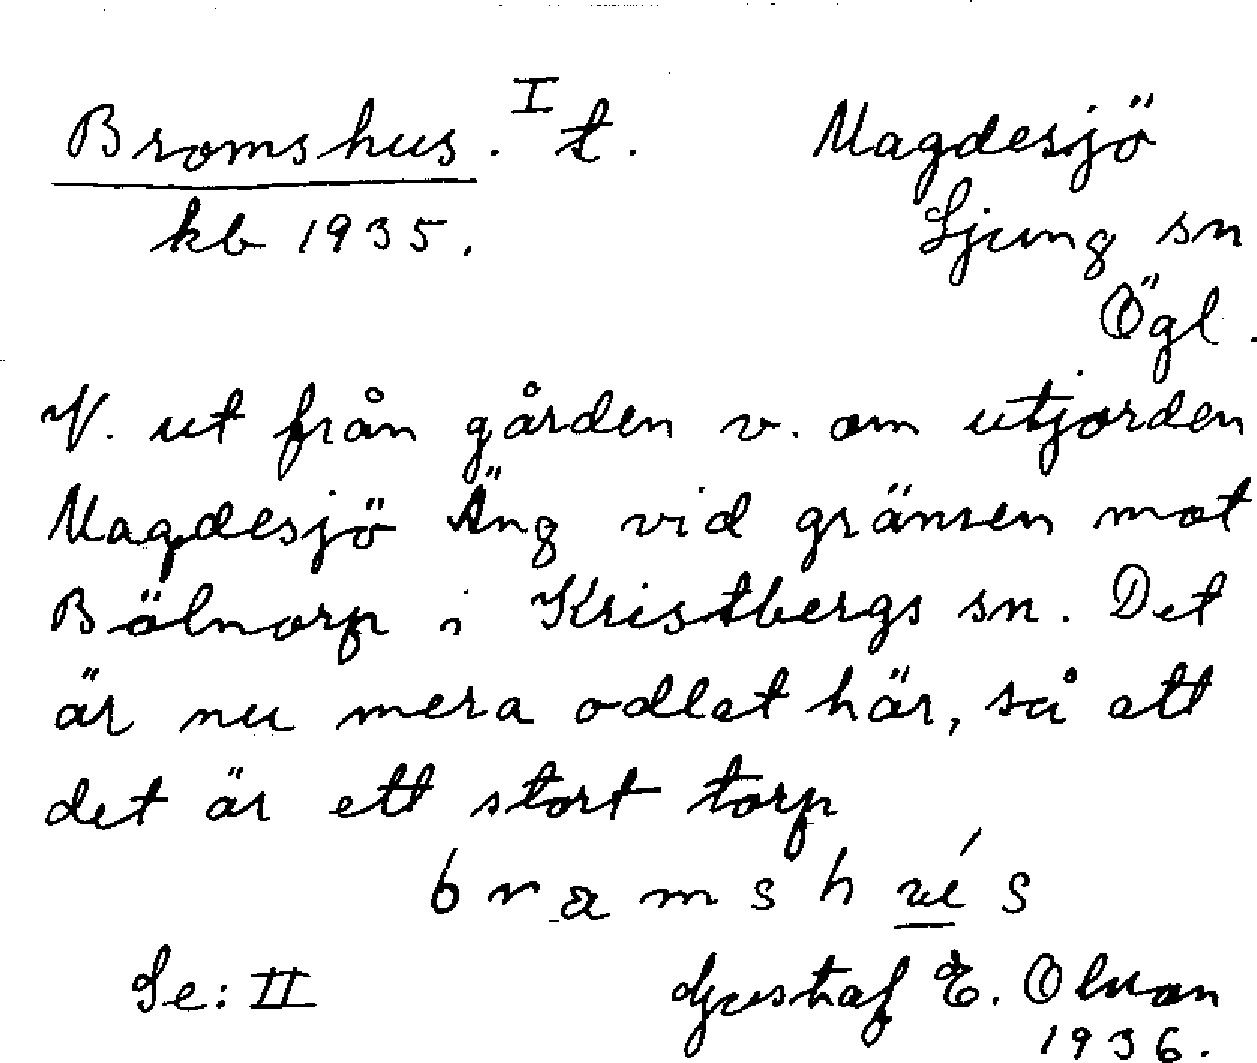 Bromshus. I t. Magdesjö
kb 1935. Ljung sn
Ögl.
V. ut från gården v. om utjorden
Magdesjö Äng vid gränsen mot
Bölnorp i Kristbergs sn. Det
är nu mera odlat här, så att
det är ett stort torp
Se: II Gustaf E. Olson
1936.